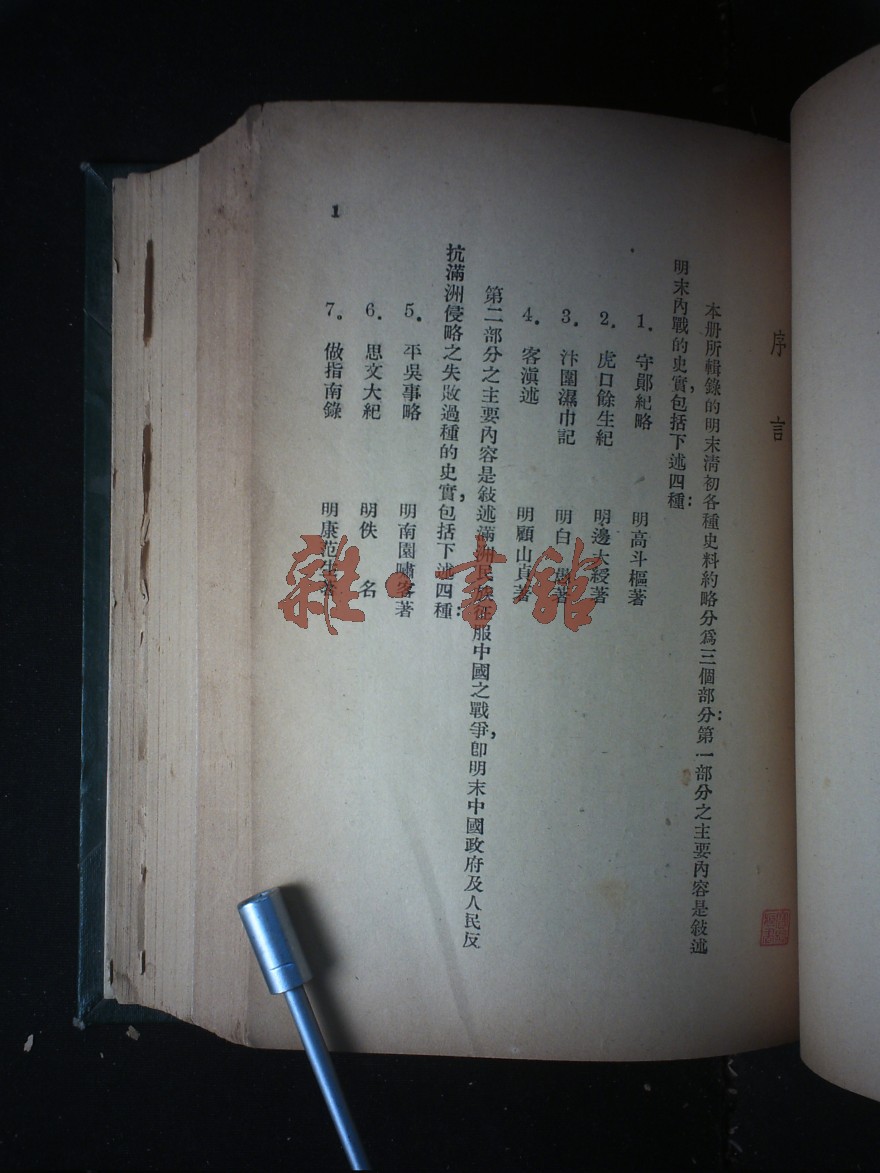 序言
本册所輯錄的明末清初各種史料約略分爲三個部分:第一部分之主要內容是敍述
明末內戰的史實,包括下述四種:
1. 守鄖紀略 明高斗樞著
2. 虎口餘生紀 明邊大綬著
3. 汴圍濕巾記 明白愚著
4. 客滇述 明顧山貞著
第二部分之主要內容是敍述滿洲民族征服中國之戰爭,卽明末中國政府及人民反
抗滿洲侵略之失敗過種的史實,包括下述四種:
5. 平吳事略 明南園嘯客著
6. 思文大紀 明佚名
7。 倣指南錄 明康范生著
1
雜·書館